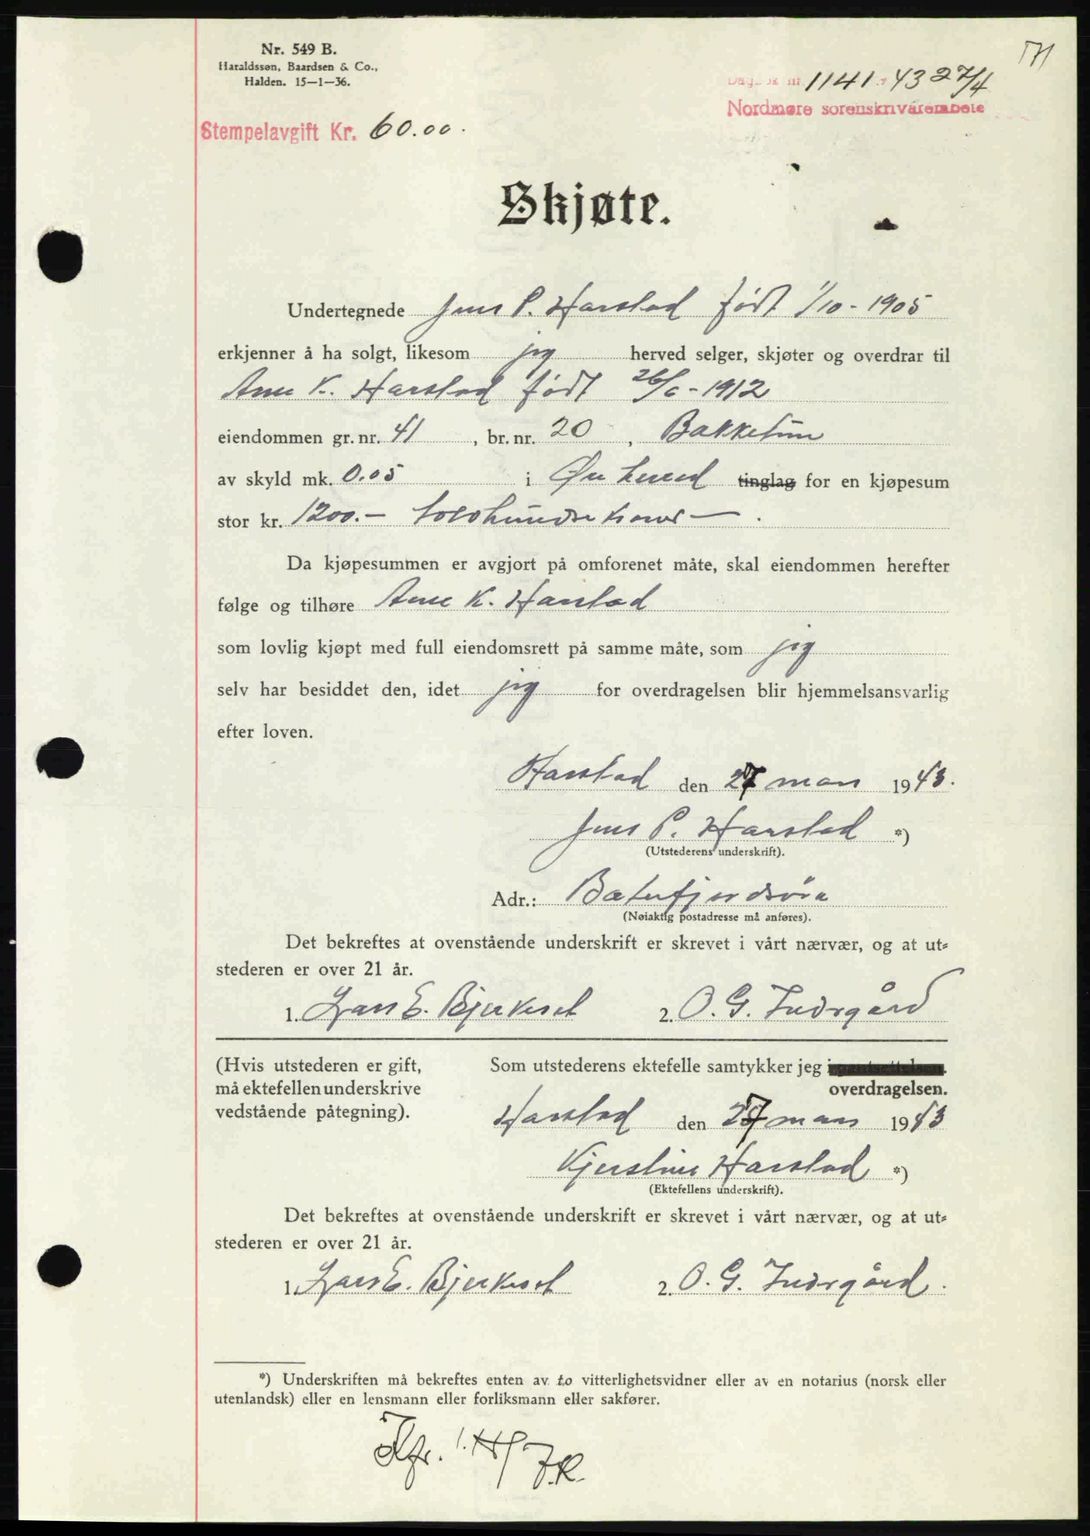 71
Nr. 549 B.
Haraldssøn, Baardsen & Co.,
Halden. 15—1—36.
Dagbok nr. 1141 - 43 27/4
Nordmøre sorenskriverembete
Stempelavgift Kr. 60.00.
Skjøte.
Undertegnede Jens P. Harstad født 1/10 - 1905
erkjenner å ha solgt, likesom jeg herved selger, skjøter og overdrar til
Ane K. Harstad født 26/6 - 1912
eiendommen gr. nr. 41 , br. nr. 20 , Bakketun
av skyld mk. 0.05 i Øre herred tinglag for en kjøpesum
stor kr. 1200.— tolvhundre kroner — .
Da kjøpesummen er avgjort på omforenet måte, skal eiendommen herefter
følge og tilhøre Ane K. Harstad
som lovlig kjøpt med full eiendomsrett på samme måte, som jeg
selv har besiddet den, idet jeg for overdragelsen blir hjemmelsansvarlig
efter loven.
Harstad den 27 mars 1943.
Jens P. Harstad *)
(Utstederens underskrift).
Adr.: Batnfjordsøra
(Nøiaktig postadresse må anføres).
Det bekreftes at ovenstående underskrift er skrevet i vårt nærvær, og at ut-
stederen er over 21 år.
1. Lars E. Bjerkeset 2. O. G. Indergård
(Hvis utstederen er gift, Som utstederens ektefelle samtykker jeg i pantsettelsen.
må ektefellen underskrive overdragelsen.
vedstående påtegning). Harstad den 27 mars 1943
Kjerstine Harstad *)
(Ektefellens underskrift).
Det bekreftes at ovenstående underskrift er skrevet i vårt nærvær, og at ut-
stederen er over 21 år.
1. Lars E. Bjerkeset 2. O. G. Indergård.
*) Underskriften må bekreftes enten av to vitterlighetsvidner eller av en notarius (norsk eller
utenlandsk) eller en lensmann eller forliksmann eller sakfører.
J.R.